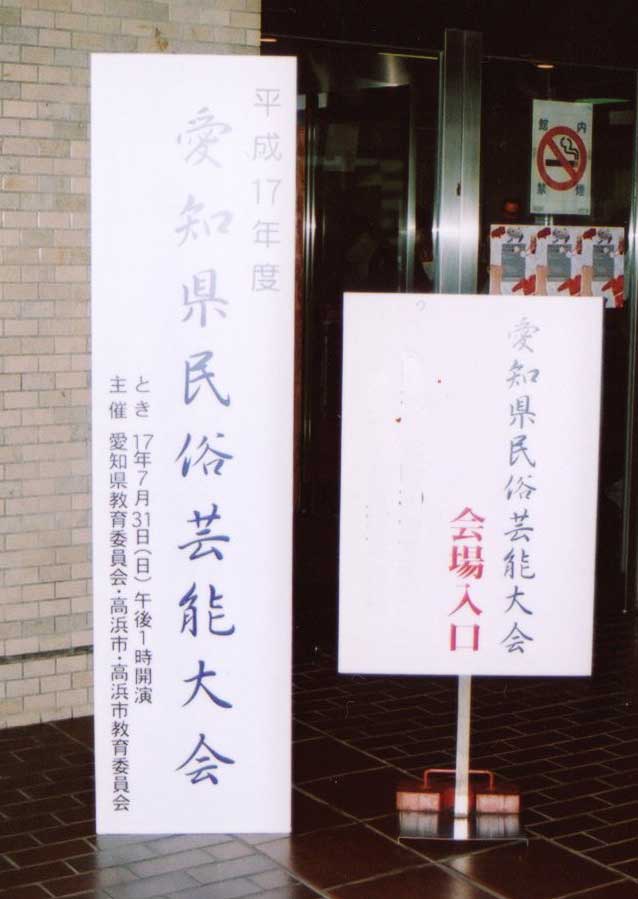 平成17年度
愛知県民俗芸能大会
とき 17年7月31日(日)午後1時開演
主催 愛知県教育委員会・高浜市・高浜市教育委員会
愛知県民俗芸能大会
会場入口
館内
禁煙